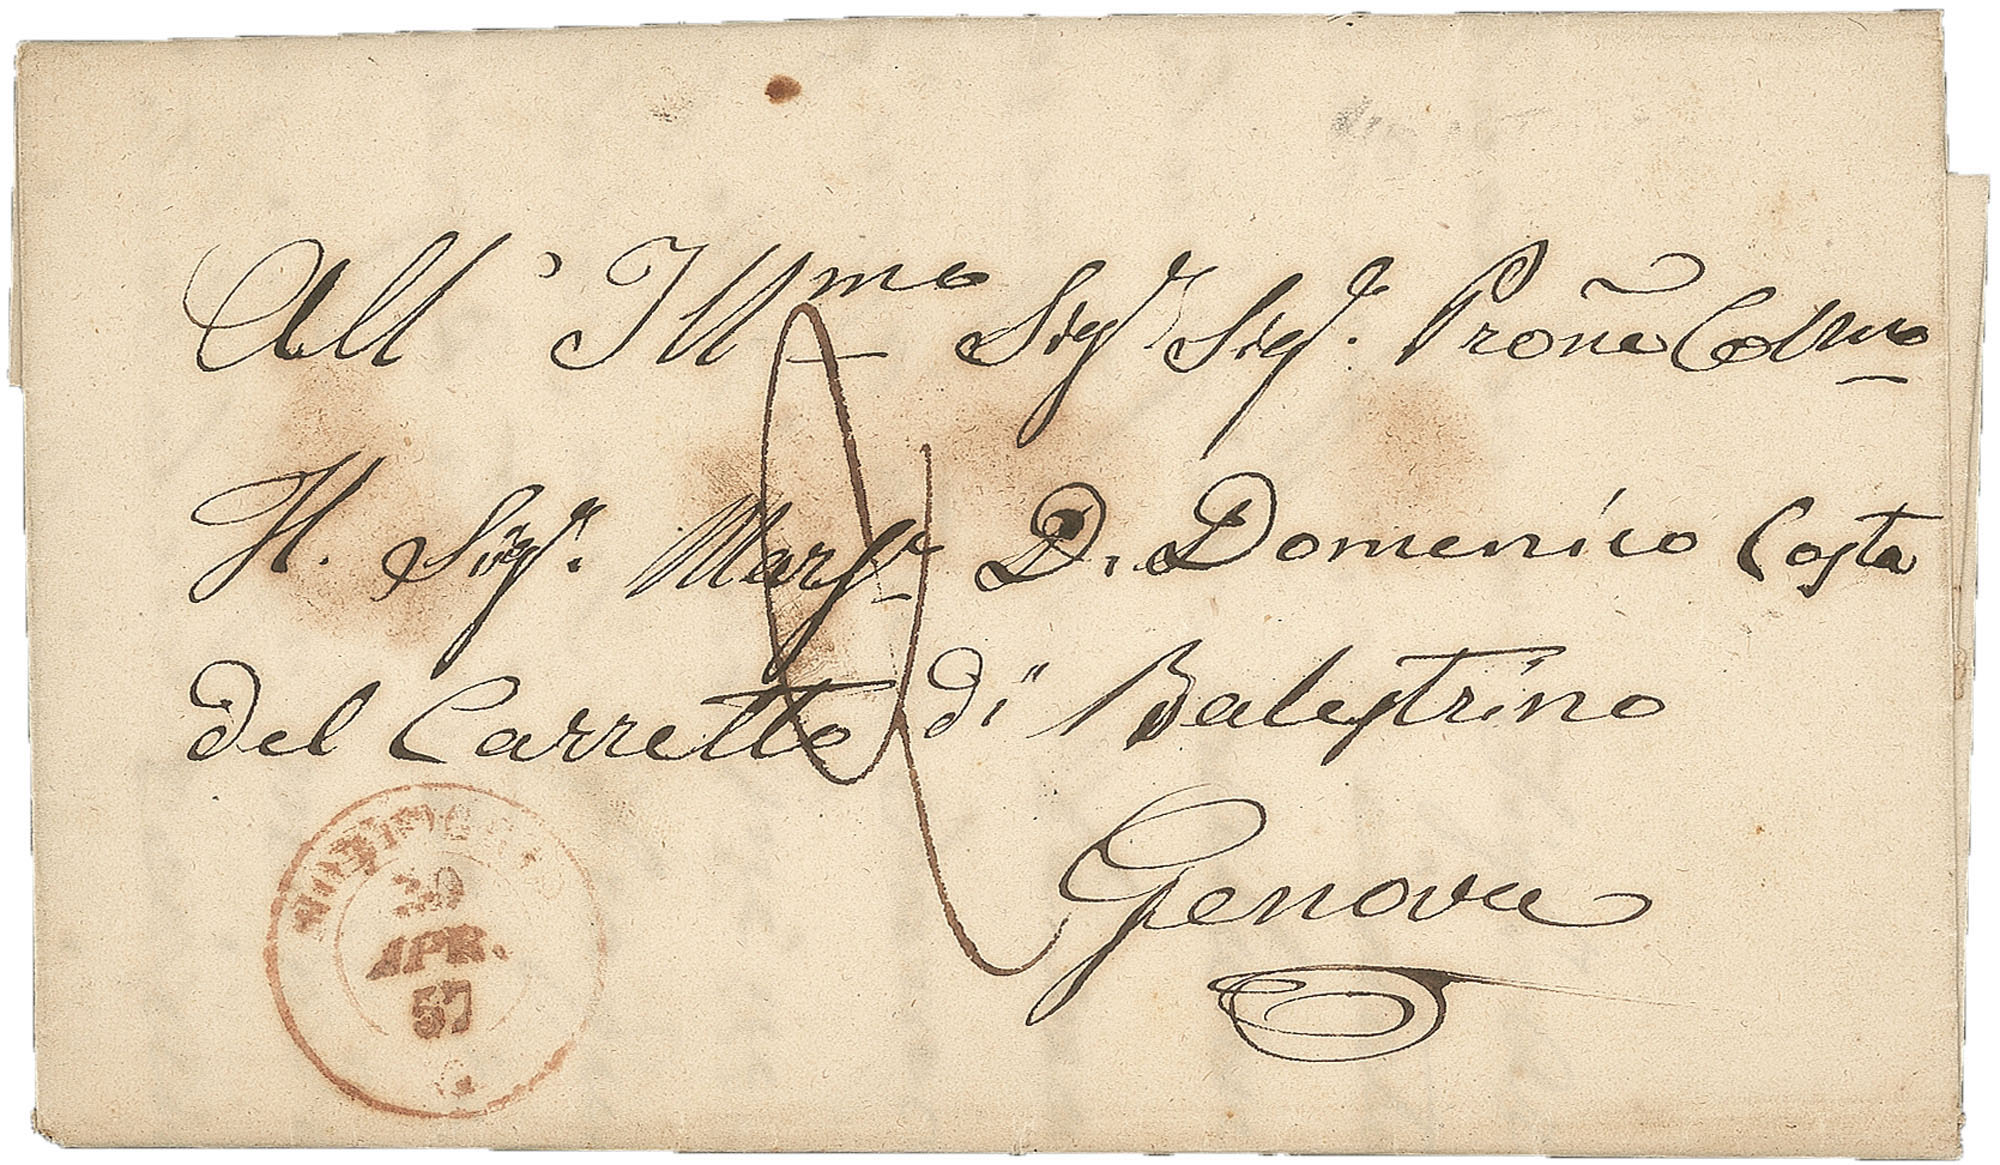 All' Ill.mo Sig.r Sig.r Prone Col.mo
Il Sig.r March.e D. Domenico Costa
del Carretto di Balestrino
Genova
30
APR.
57